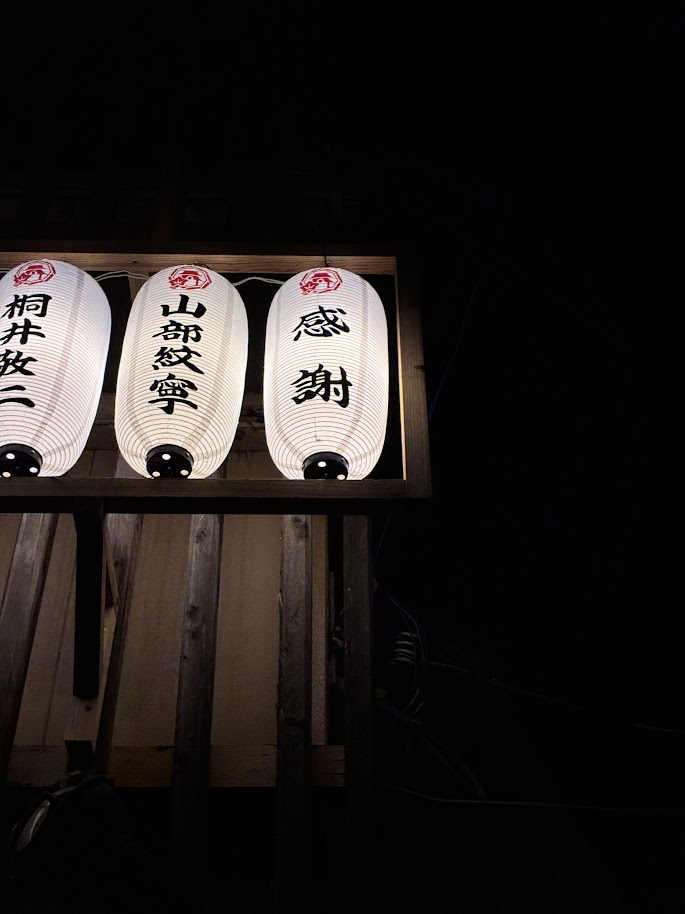 感謝
山部紋寧
桐井敬二